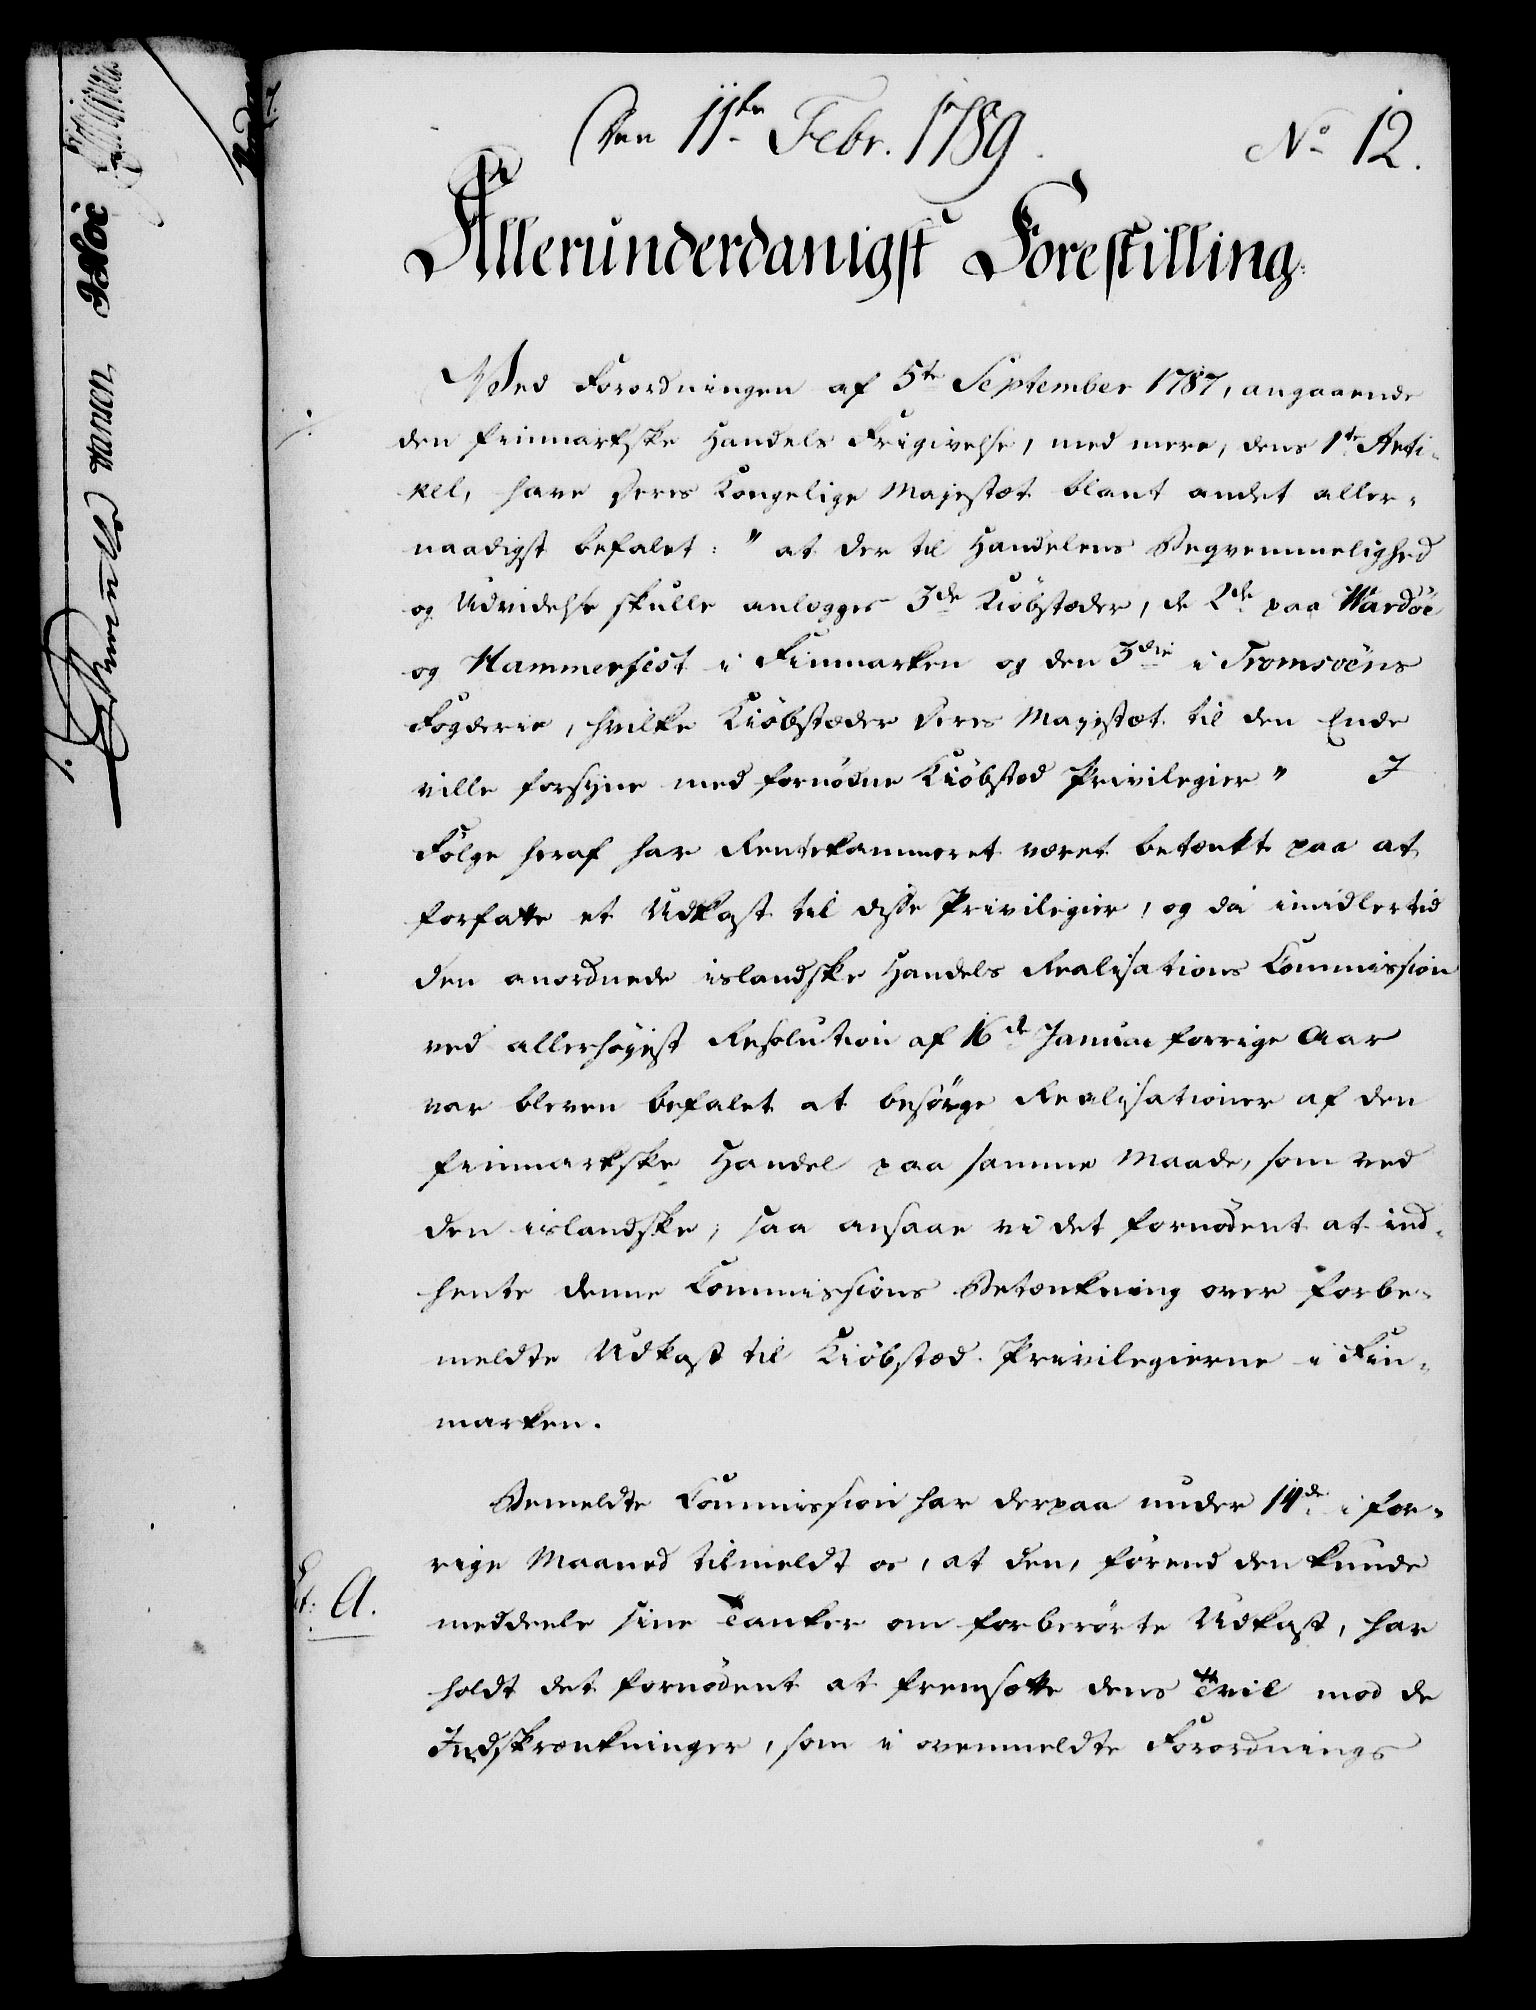 Den 11te Febr. 1789.
No 12.
Allerunderdanigst Forestilling.
Ved Forordningen af 5te September 1787, angaaende
den finmarkske Handels Frigivelse, med mere, dens 1te Arti-
kel, have Deres Kongelige Majestæt blant andet aller-
naadigst befalet: " at der til Handelens Beqvemmelighed
og Udvidelse skulle anlægges 3de Kiöbstæder, de 2de paa Wardöe
og Hammerfest i Finmarken og den 3die i Tromsöens
Fogderie, hvilke Kiöbstæder Deres Majestæt til den Ende
ville forsyne med fornödne Kiöbstæd Privilegier " I
Fölge heraf har Rentekammeret været betænkt paa at
forfatte et Udkast til disse Privilegier, og da imidlertid
den anordnede islandske Handels Realisations Commission
ved allerhöyest Resolution af 16de Januar forrige Aar
var bleven befalet at besörge Realisationer af den
finmarkske Handel paa samme Maade, som ved
den islandske, saa ansaae vi det fornödent at ind-
hente denne Commissions Betænkning over forbe-
meldte Udkast til Kiöbstæd Privilegierne i Fin-
marken.
Bemeldte Commission har derpaa under 14de i for-
rige Maaned tilmeldt os, at den, förend den kunde
A.
meddeele sine Tanker om forberörte Udkast, har
holdt det fornödent at fremsætte dens Tvil mod de
Indskrænkninger, som i ovenmeldte Forordnings